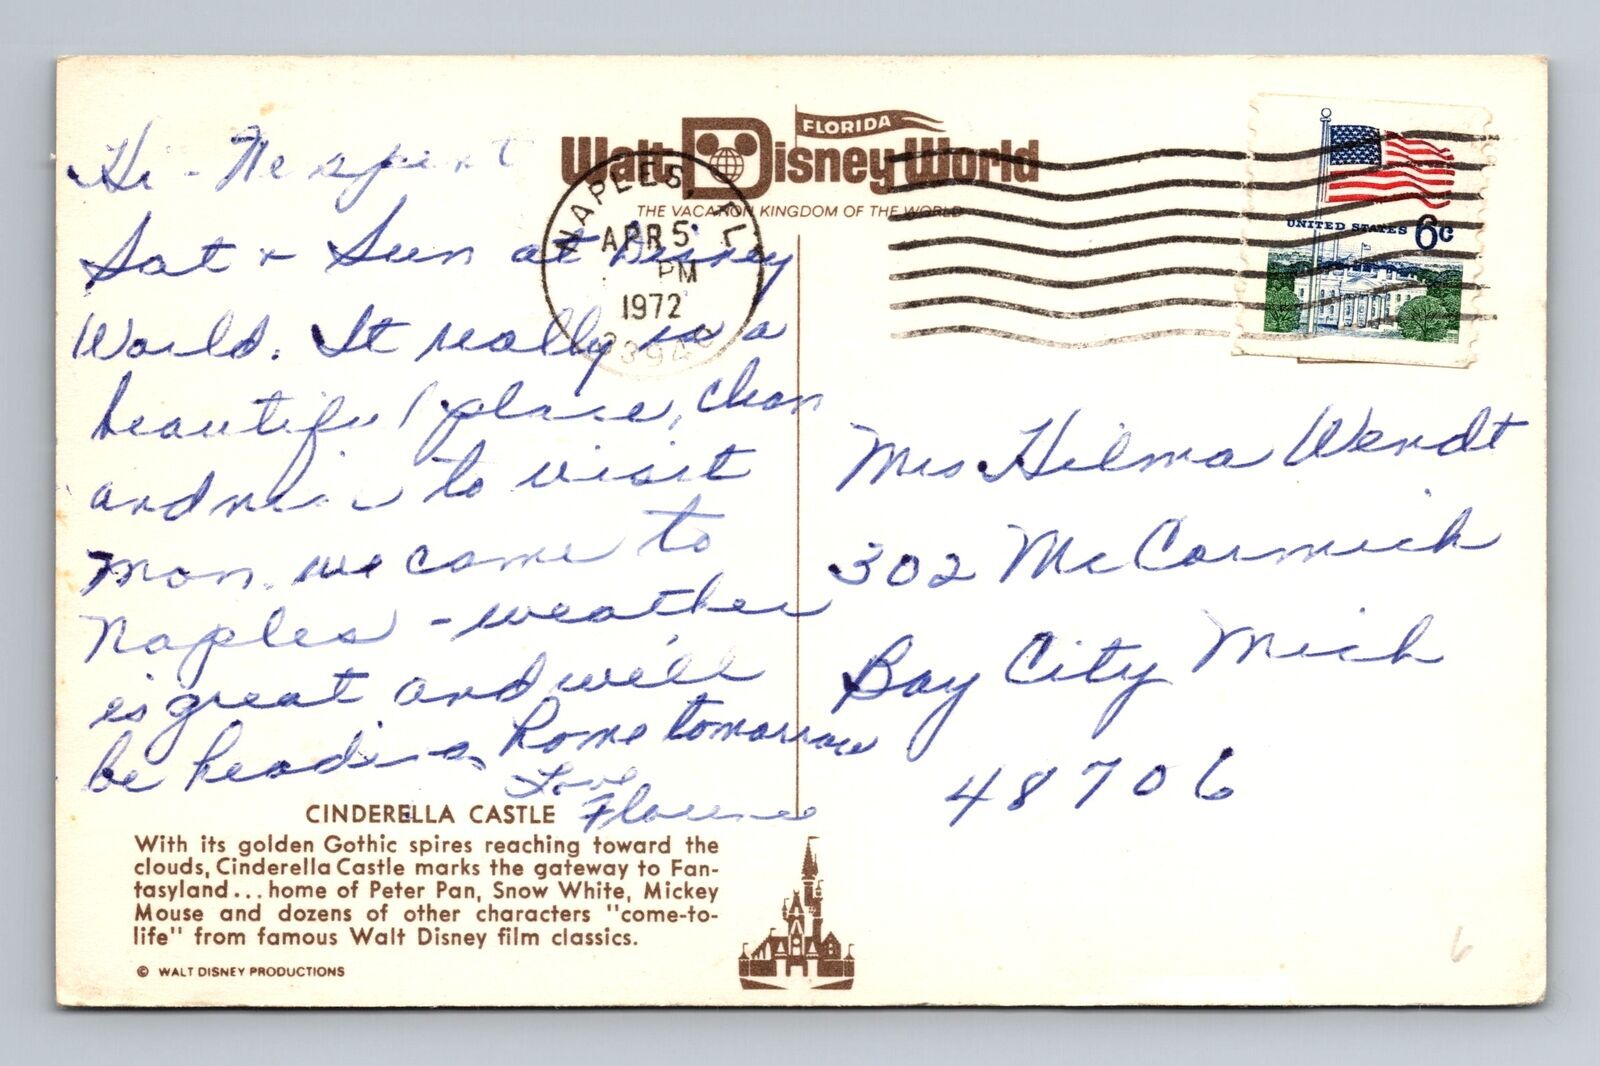 Hi - We spent
Sat + Sun at Disney
World. It really is a
beautiful place, clean
and nice to visit
Mon. we came to
Naples - weather
is great and will
be heading home tomorrow
Love
Florence
FLORIDA
Walt Disney World
THE VACATION KINGDOM OF THE WORLD
NAPLES, FL
APR 5
PM
1972
UNITED STATES 6c
Mrs Hilma Wendt
302 McCormick
Bay City Mich
48706
CINDERELLA CASTLE
With its golden Gothic spires reaching toward the
clouds, Cinderella Castle marks the gateway to Fan-
tasyland... home of Peter Pan, Snow White, Mickey
Mouse and dozens of other characters "come-to-
life" from famous Walt Disney film classics.
© WALT DISNEY PRODUCTIONS
6